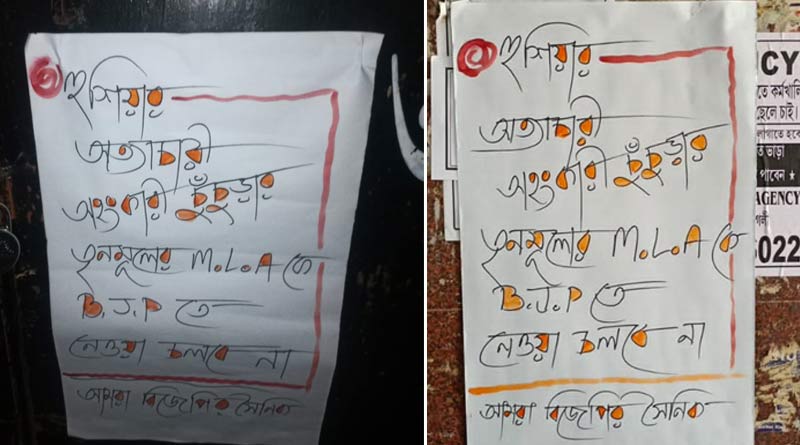 হুশিয়ার
অত্যাচারী
অহংকারী চুঁচুড়ার
তৃনমূলের M.L.A কে
B.J.P তে
নেওয়া চলবে না
আমরা বিজেপির সৈনিক
হুশিয়ার
অত্যাচারী
অহংকারী চুঁচুড়ার
তৃনমূলের M.L.A কে
B.J.P তে
নেওয়া চলবে না
আমরা বিজেপির সৈনিক
CY
তে কর্মখালি
ছেলে চাই।
লাগাতে হবে
ত ভাড়া
পাবেন ★
AGENCY
6022